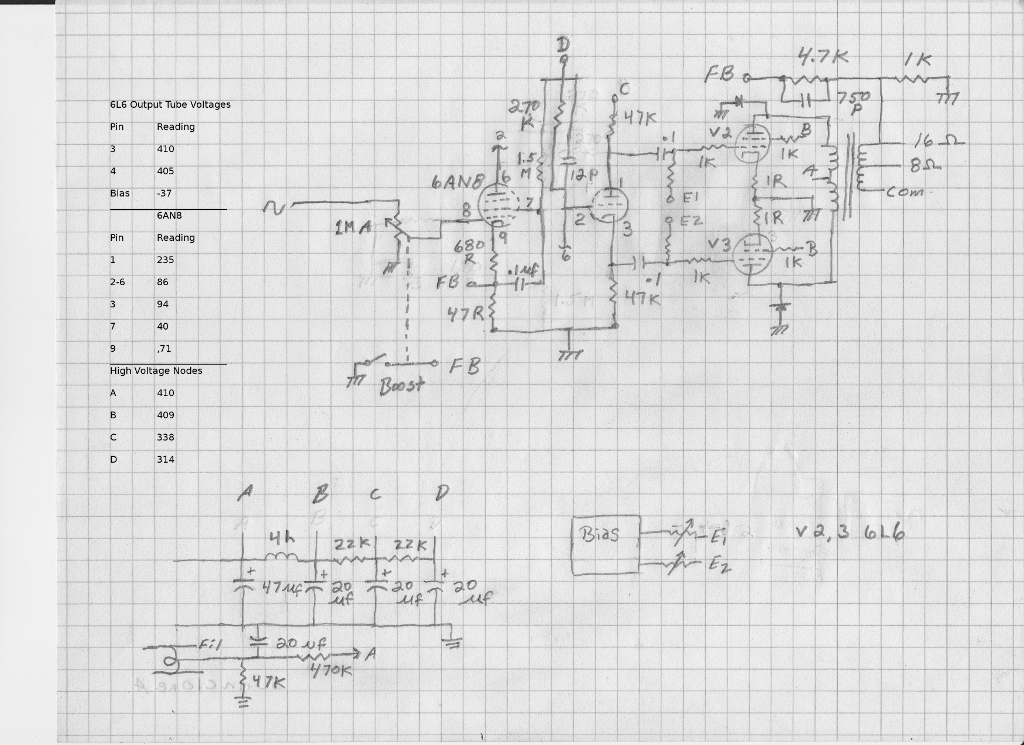 6L6 Output Tube Voltages
Pin Reading
3 410
4 405
Bias -37
6AN8
Pin Reading
1 235
2-6 86
3 94
7 40
9 ,71
High Voltage Nodes
A 410
B 409
C 338
D 314
D
C
FB 4.7K 1K
750 P
270 K
47K
2
6
1.5 M
12P
.1
V2
1K
B
1K
16Ω
8Ω
A
Com
6AN8
8
7
9
1
2
3
6
E1
E2
1R
1R
1MA
680 R
.1uf
FB
47R
47K
.1
1K
V3
B
1K
FB
Boost
A B C D
4h 22K 22K
+ 47uf + 20 uf + 20 uf + 20 uf
Fil 20uf A
470K
47K
Bias E1
E2
V2,3 6L6